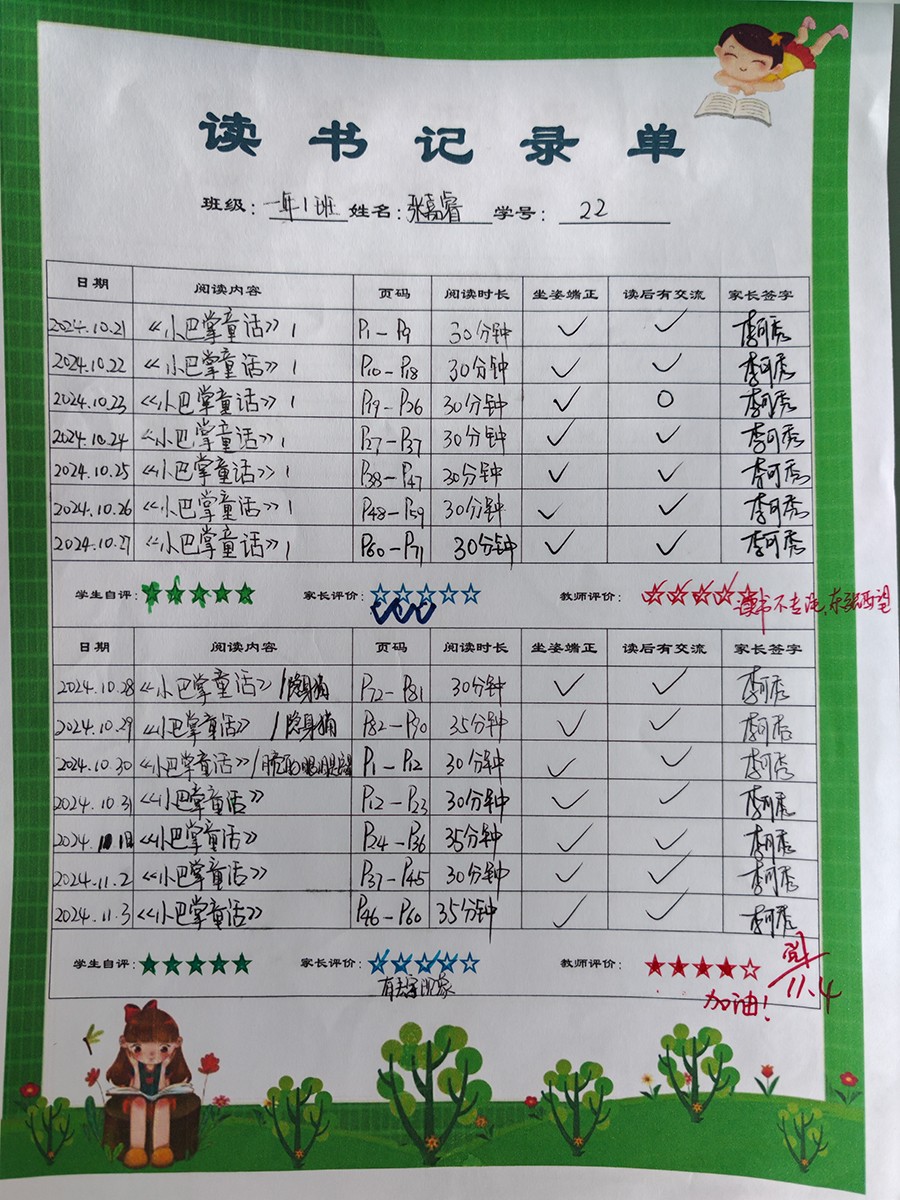 读书记录单
班级：一年1班 姓名：张嘉睿 学号：22
日期 阅读内容 页码 阅读时长 坐姿端正 读后有交流 家长签字
2024.10.21 《小巴掌童话》1 P1-P9 30分钟 ✓ ✓ 李可秀
2024.10.22 《小巴掌童话》1 P10-P18 30分钟 ✓ ✓ 李可秀
2024.10.23 《小巴掌童话》1 P19-P26 30分钟 ✓ O 李可秀
2024.10.24 《小巴掌童话》1 P27-P37 30分钟 ✓ ✓ 李可秀
2024.10.25 《小巴掌童话》1 P38-P47 30分钟 ✓ ✓ 李可秀
2024.10.26 《小巴掌童话》1 P48-P59 30分钟 ✓ ✓ 李可秀
2024.10.27 《小巴掌童话》1 P60-P71 30分钟 ✓ ✓ 李可秀
学生自评：★★★★★ 家长评价：☆☆☆☆☆ 教师评价：☆☆☆☆☆ 读书不专注，东张西望
日期 阅读内容 页码 阅读时长 坐姿端正 读后有交流 家长签字
2024.10.28 《小巴掌童话》1隐身猫 P72-P81 30分钟 ✓ ✓ 李可秀
2024.10.29 《小巴掌童话》1隐身猫 P82-P90 35分钟 ✓ ✓ 李可秀
2024.10.30 《小巴掌童话》 P1-P12 30分钟 ✓ ✓ 李可秀
2024.10.31 《小巴掌童话》 P12-P23 30分钟 ✓ ✓ 李可秀
2024. 《小巴掌童话》 P24-P36 35分钟 ✓ ✓ 李可秀
2024.11.2 《小巴掌童话》 P37-P45 30分钟 ✓ ✓ 李可秀
2024.11.3 《小巴掌童话》 P46-P60 35分钟 ✓ ✓ 李可秀
学生自评：★★★★★ 家长评价：☆☆☆☆☆ 教师评价：★★★★☆
有丢字现象
加油！
11.4